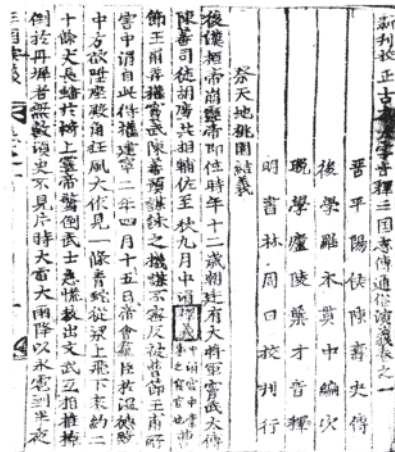 新刊校正古本大字音釋三國志傳通俗演義卷之一
晉平陽侯陳壽史傳
後學羅本貫中編次
學廬陵葉才音釋
明書林周曰校刊行
祭天地桃園結義
後漢桓帝崩靈帝即位時年十二歲朝廷有大將軍竇武太傅
陳蕃司徒胡廣共相輔佐至秋九月中涓釋義中涓官中
節王甫弄權竇武陳蕃預謀誅之機謀不密反被曹節王甫所
害中涓自此得權建寧二年四月十五日帝會羣臣於溫德殿
中方欲陞座殿角狂風大作見一條青蛇從梁上飛下來約二
十餘丈長蟠於椅上靈帝驚倒武士急慌救出文武互相推擁
倒於丹墀者無數須臾不見片時大雷大雨降以冰雹到半夜